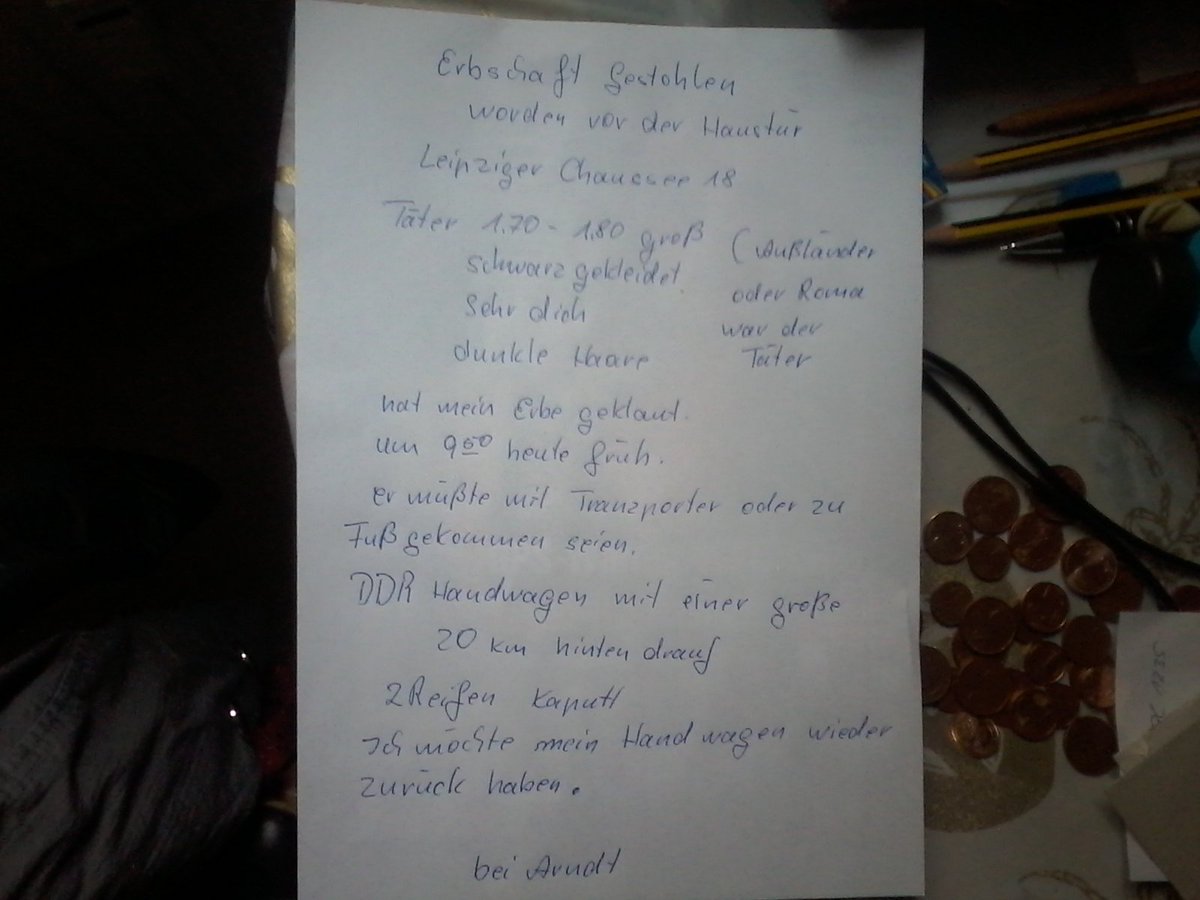 Erbschaft gestohlen
worden vor der Haustür
Leipziger Chaussee 18
Täter 1.70 - 1.80 groß
schwarz gekleidet
sehr dich
dunkle Haare
(Außländer
oder Roma
war der
Täter
hat mein Erbe geklaut.
um 9⁵⁰ heute früh.
er müßte mit Tranzporter oder zu
Fuß gekommen seien.
DDR Handwagen mit einer große
20 km hinten drauf
2 Reifen kaputt
Ich möchte mein Handwagen wieder
zurück haben.
bei Arndt